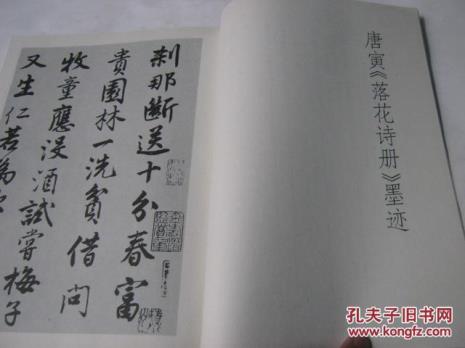 唐寅《落花诗册》墨迹
刹那断送十分春富
贵园林一洗贫借问
牧童應没酒試嘗梅子
又生仁若為
孔夫子旧书网
www.kongfz.com